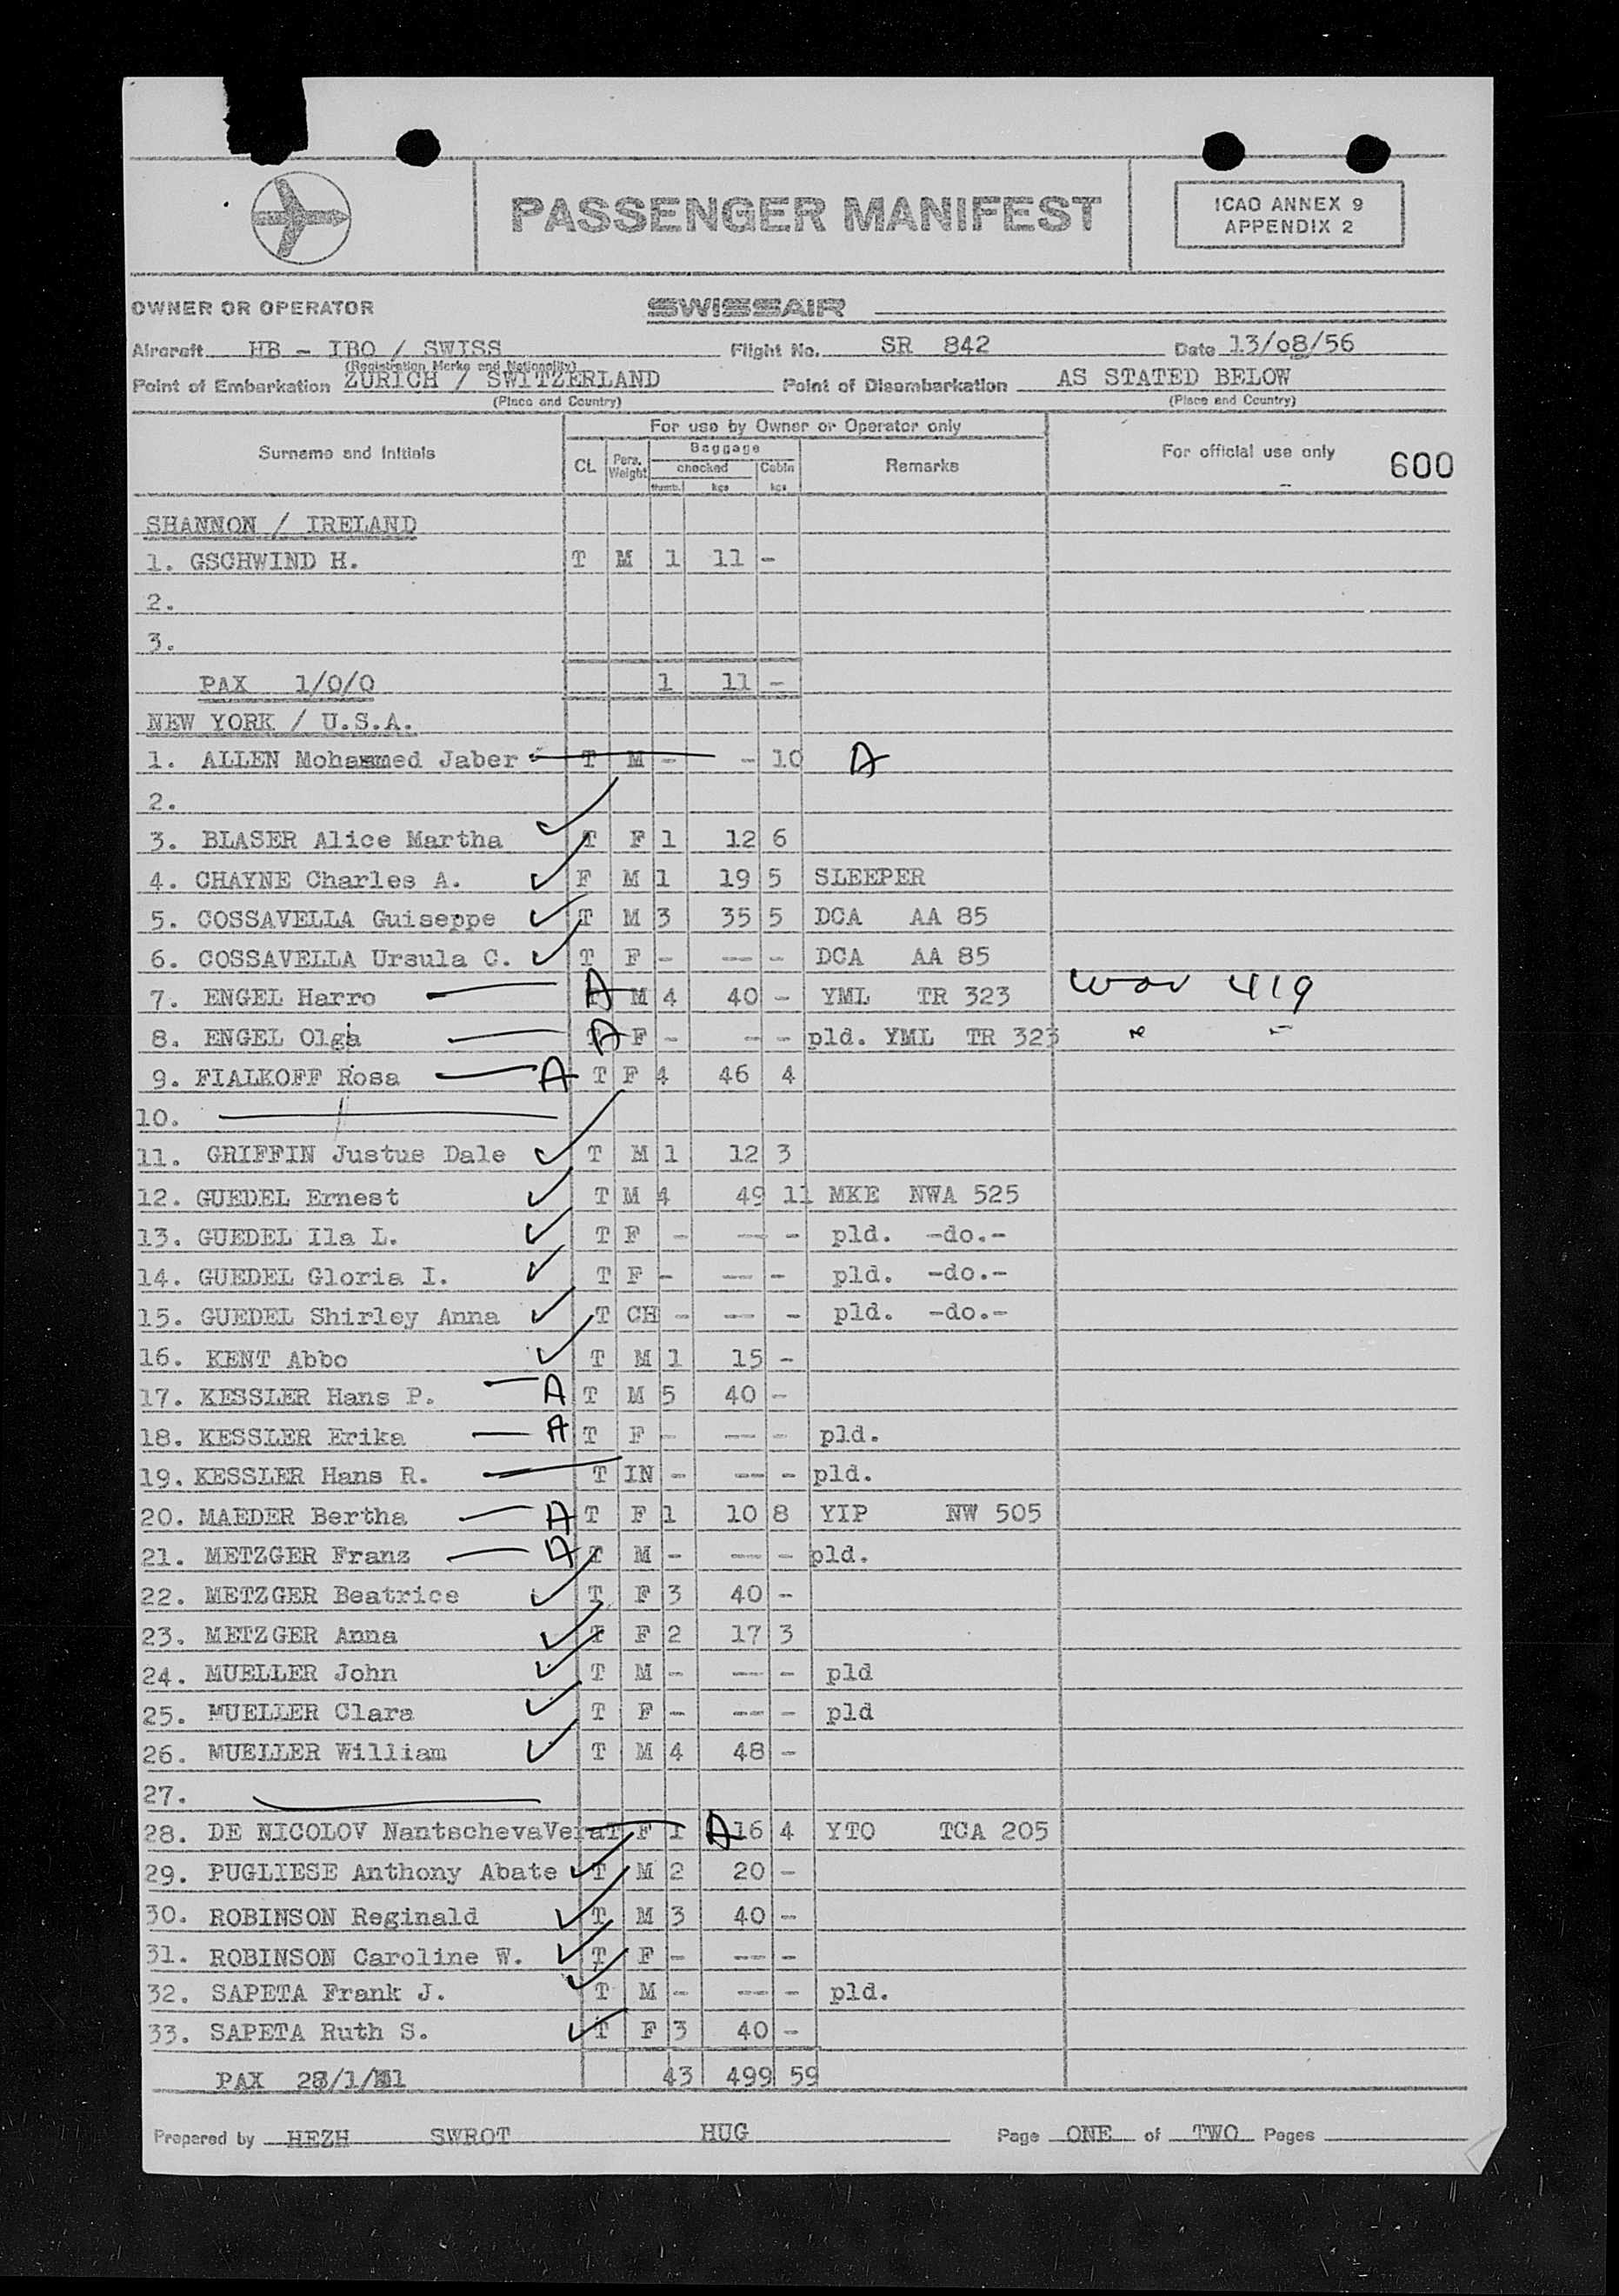 PASSENGER MANIFEST
ICAO ANNEX 9
APPENDIX 2
OWNER OR OPERATOR SWISSAIR
Aircraft HB - IBO / SWISS Flight No. SR 842 Date 13/08/56
(Registration Marks and Nationality)
Point of Embarkation ZURICH / SWITZERLAND Point of Disembarkation AS STATED BELOW
(Place and Country) (Place and Country)
Surname and Initials For use by Owner or Operator only For official use only 600
CL Pers. Weight Baggage Remarks
checked Cabin
numb. kgs kgs
SHANNON / IRELAND
1. GSCHWIND H. T M 1 11 -
2.
3.
PAX 1/0/0 1 11 -
NEW YORK / U.S.A.
1. ALLEN Mohammed Jaber T M - - 10 A
2.
3. BLASER Alice Martha T F 1 12 6
4. CHAYNE Charles A. F M 1 19 5 SLEEPER
5. COSSAVELLA Guiseppe T M 3 35 5 DCA AA 85
6. COSSAVELLA Ursula C. T F - --- - DCA AA 85
7. ENGEL Harro A M 4 40 - YML TR 323 419
8. ENGEL Olga T A F - -- - pld. YML TR 323
9. FIALKOFF Rosa A T F 4 46 4
10.
11. GRIFFIN Justus Dale T M 1 12 3
12. GUEDEL Ernest T M 4 49 11 MKE NWA 525
13. GUEDEL Ila L. T F - --- - pld. -do.-
14. GUEDEL Gloria I. T F - --- - pld. -do.-
15. GUEDEL Shirley Anna T CH - --- - pld. -do.-
16. KENT Abbo T M 1 15 -
17. KESSLER Hans P. A T M 5 40 -
18. KESSLER Erika A T F - --- - pld.
19. KESSLER Hans R. T IN - --- - pld.
20. MAEDER Bertha A T F 1 10 8 YIP NW 505
21. METZGER Franz A T M - --- - pld.
22. METZGER Beatrice T F 3 40 -
23. METZGER Anna T F 2 17 3
24. MUELLER John T M - --- - pld
25. MUELLER Clara T F - --- - pld
26. MUELLER William T M 4 48 -
27.
28. DE NICOLOV NantschevaVera T F 1 A 16 4 YTO TCA 205
29. PUGLIESE Anthony Abate T M 2 20 -
30. ROBINSON Reginald T M 3 40 -
31. ROBINSON Caroline W. T F - --- -
32. SAPETA Frank J. T M - --- - pld.
33. SAPETA Ruth S. T F 3 40 -
PAX 28/1/1 43 499 59
Prepared by HEZH SWROT HUG Page ONE of TWO Pages